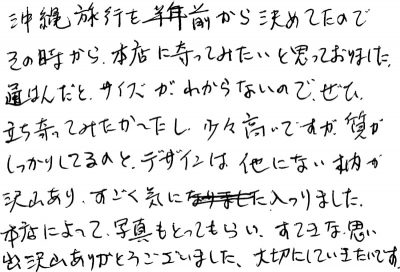 沖縄旅行を半年前から決めてたので
その時から、本店に寄ってみたいと思っておりました。
通はんだと、サイズがわからないので、ぜひ、
立ち寄ってみたかったし、少々高いですが、質が
しっかりしてるのと、デザインは他にない柄が
沢山あり、すごく気に入りました。
本店によって、写真もとってもらい、すてきな思い
出沢山ありがとうございました、大切にしていきたいです。